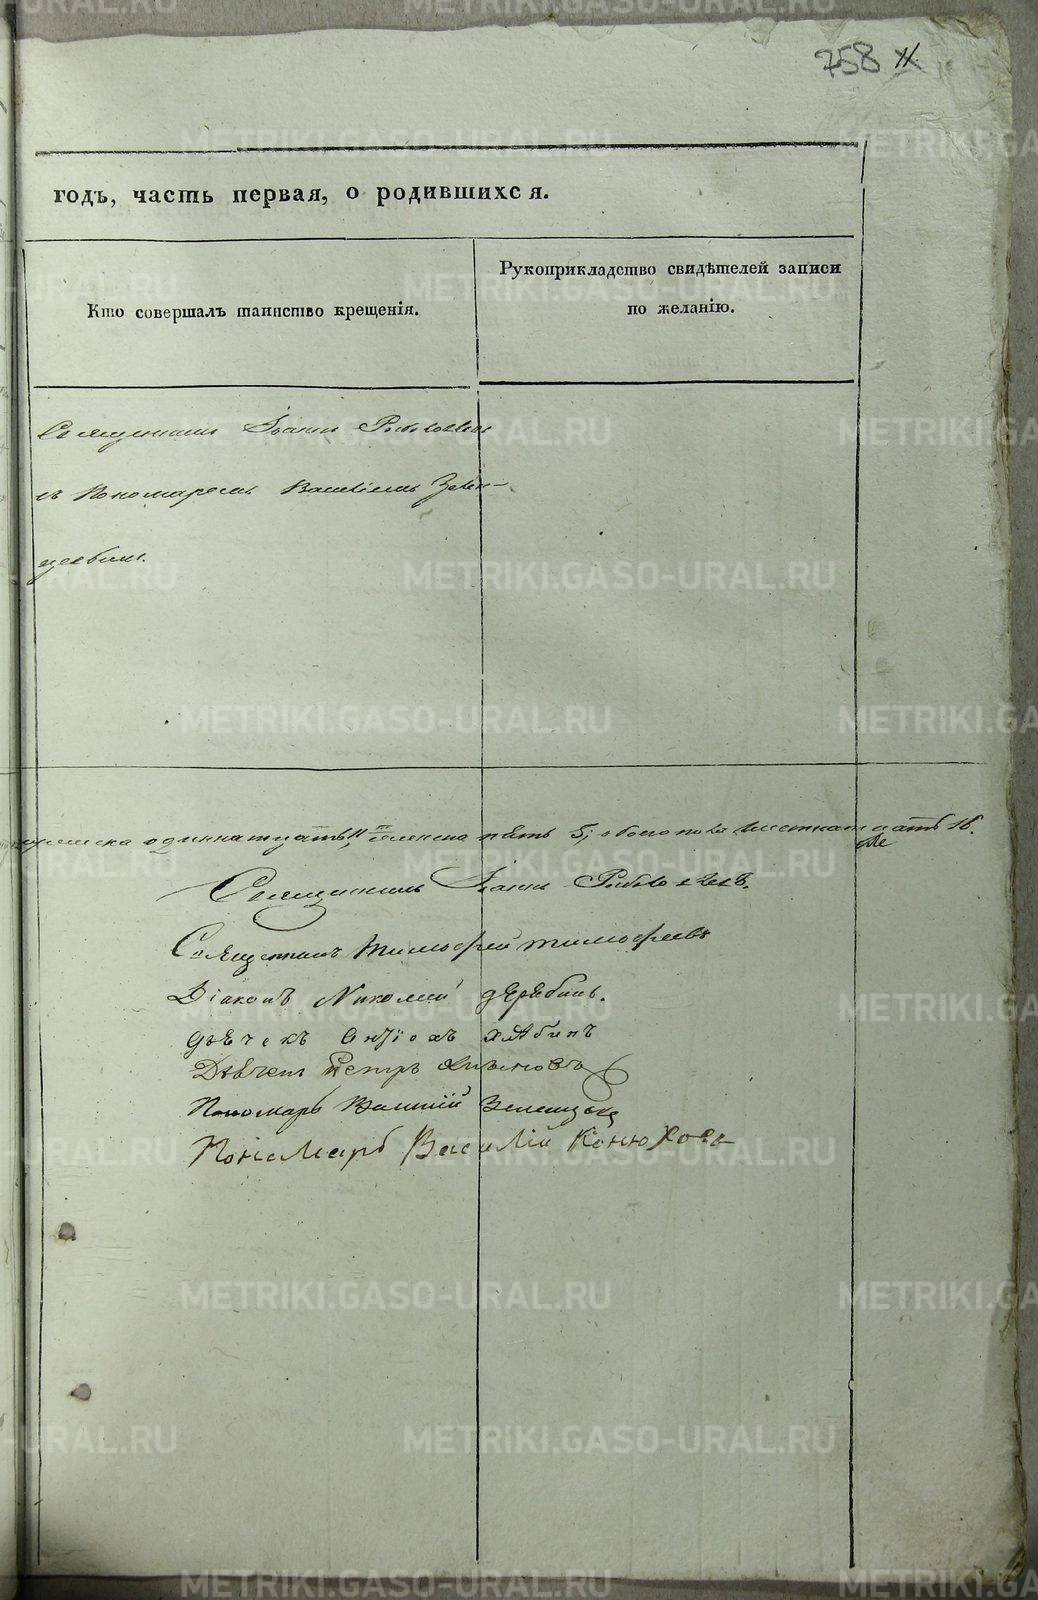 758 11
годъ, часть первая, о родившихся.
Кто совершалъ таинство крещенія.
Рукоприкладство свидѣтелей записи
по желанію.
Священникъ Іоаннъ
съ Пономаремъ Василіемъ Зелен-
цовымъ.
одиннатцать 11, женска пять 5, обоего пола шестнатцать 16.
Священникъ Іоаннъ
Священникъ Тимофей Тимофеевъ
Діаконъ Николай Дерябинъ.
Дьечекъ Антіохъ Хлябинъ
Дьечекъ Петръ
Пономарь Василій Зеленцовъ
Понамарь Василій Конюховъ
METRIKI.GASO-URAL.RU